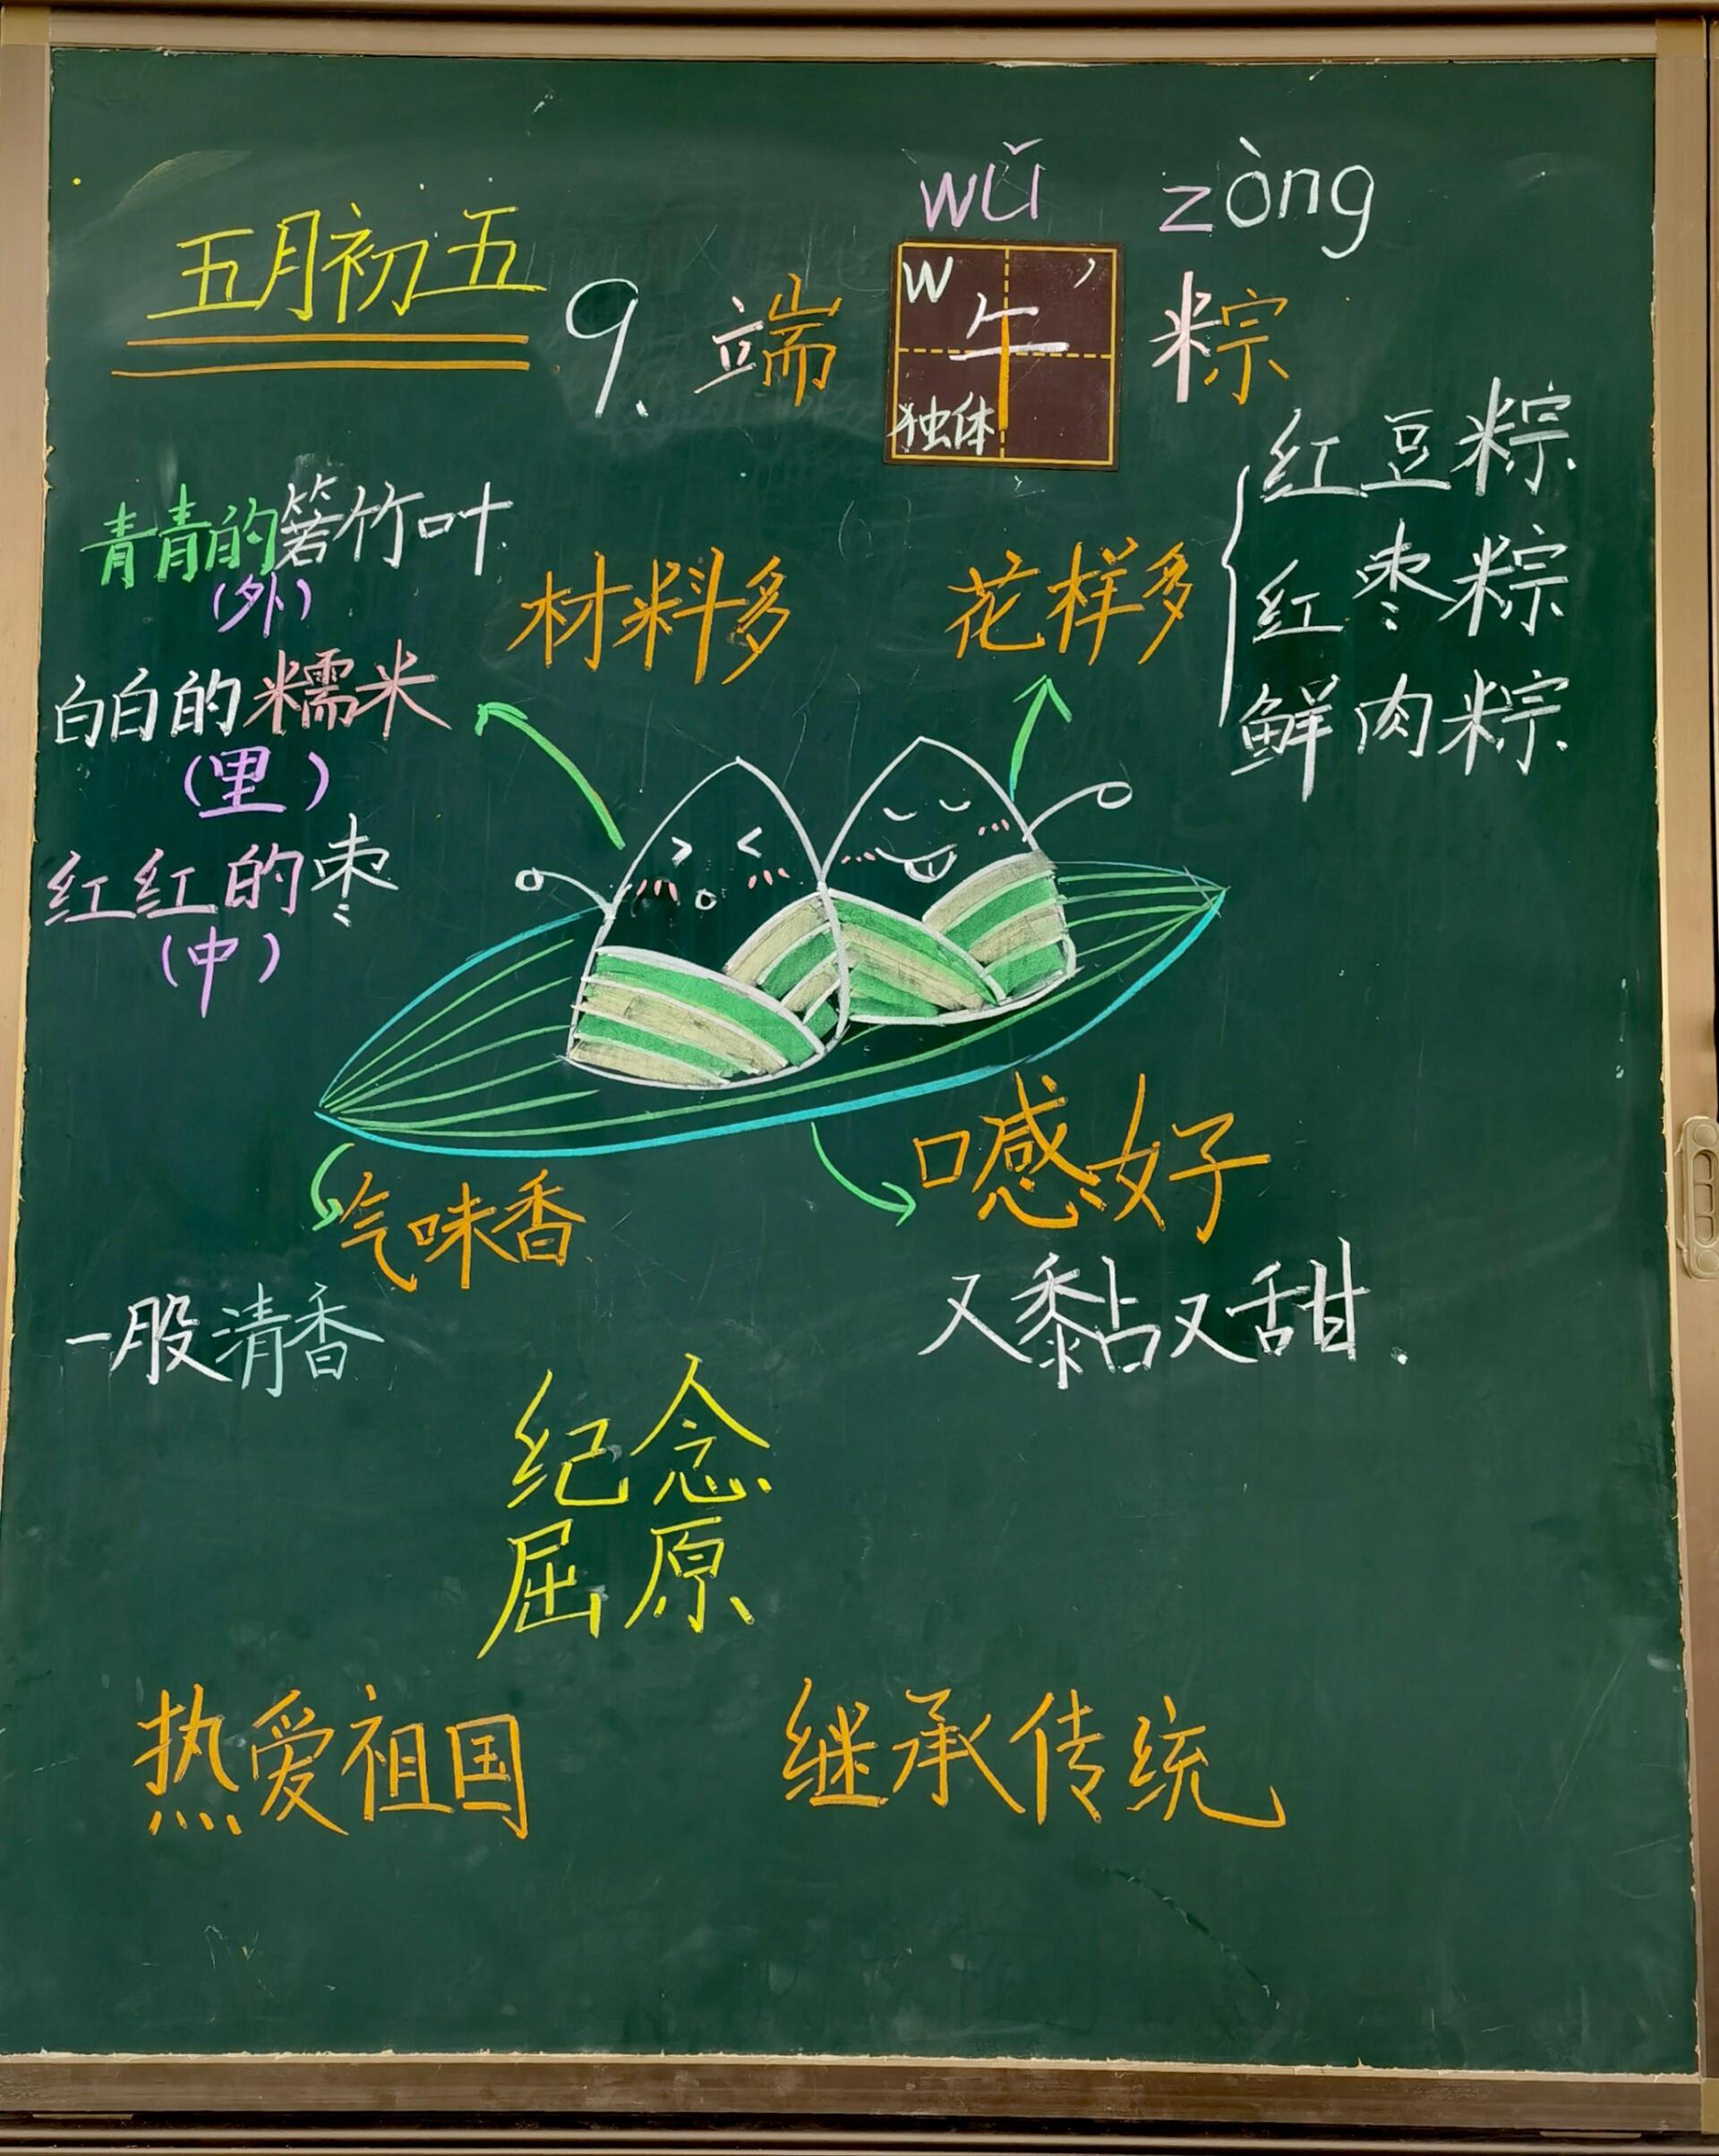 wǔ zòng
五月初五
9. 端午粽
W
独体
红豆粽
红枣粽
鲜肉粽
青青的箬竹叶
(外)
材料多
花样多
白白的糯米
(里)
红红的枣
(中)
口感好
气味香
又黏又甜
一股清香
纪念
屈原
热爱祖国
继承传统